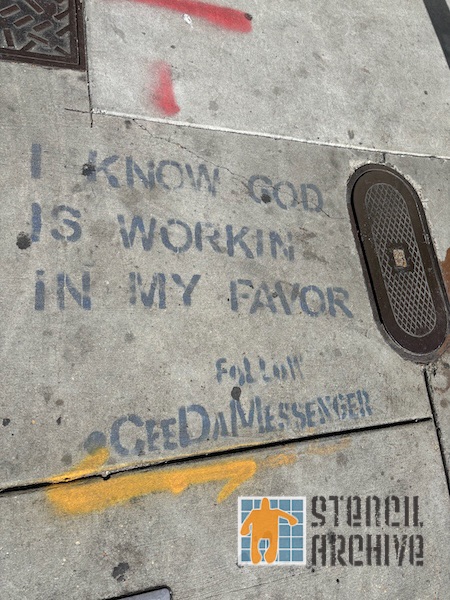 I KNOW GOD
IS WORKIN
IN MY FAVOR
FOLLOW
@GEEDAMESSENGER
STENCIL
ARCHIVE